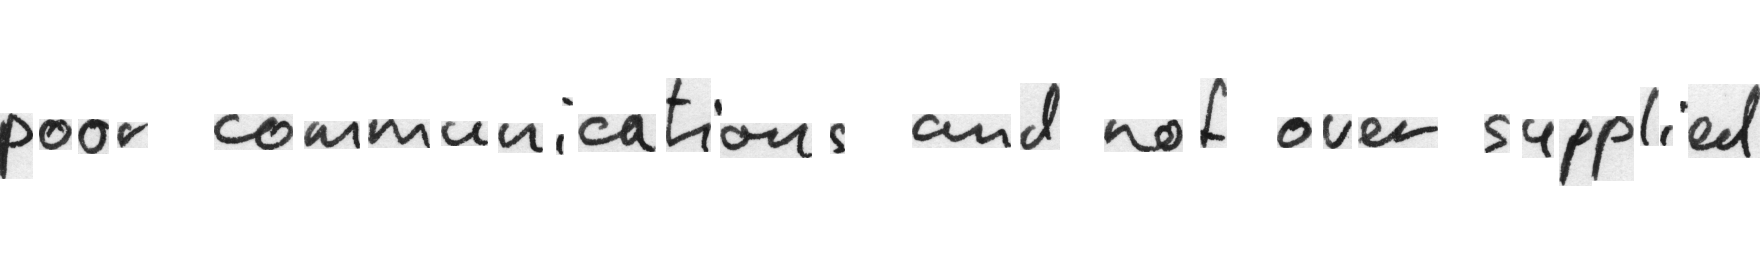 poor communications and not over supplied